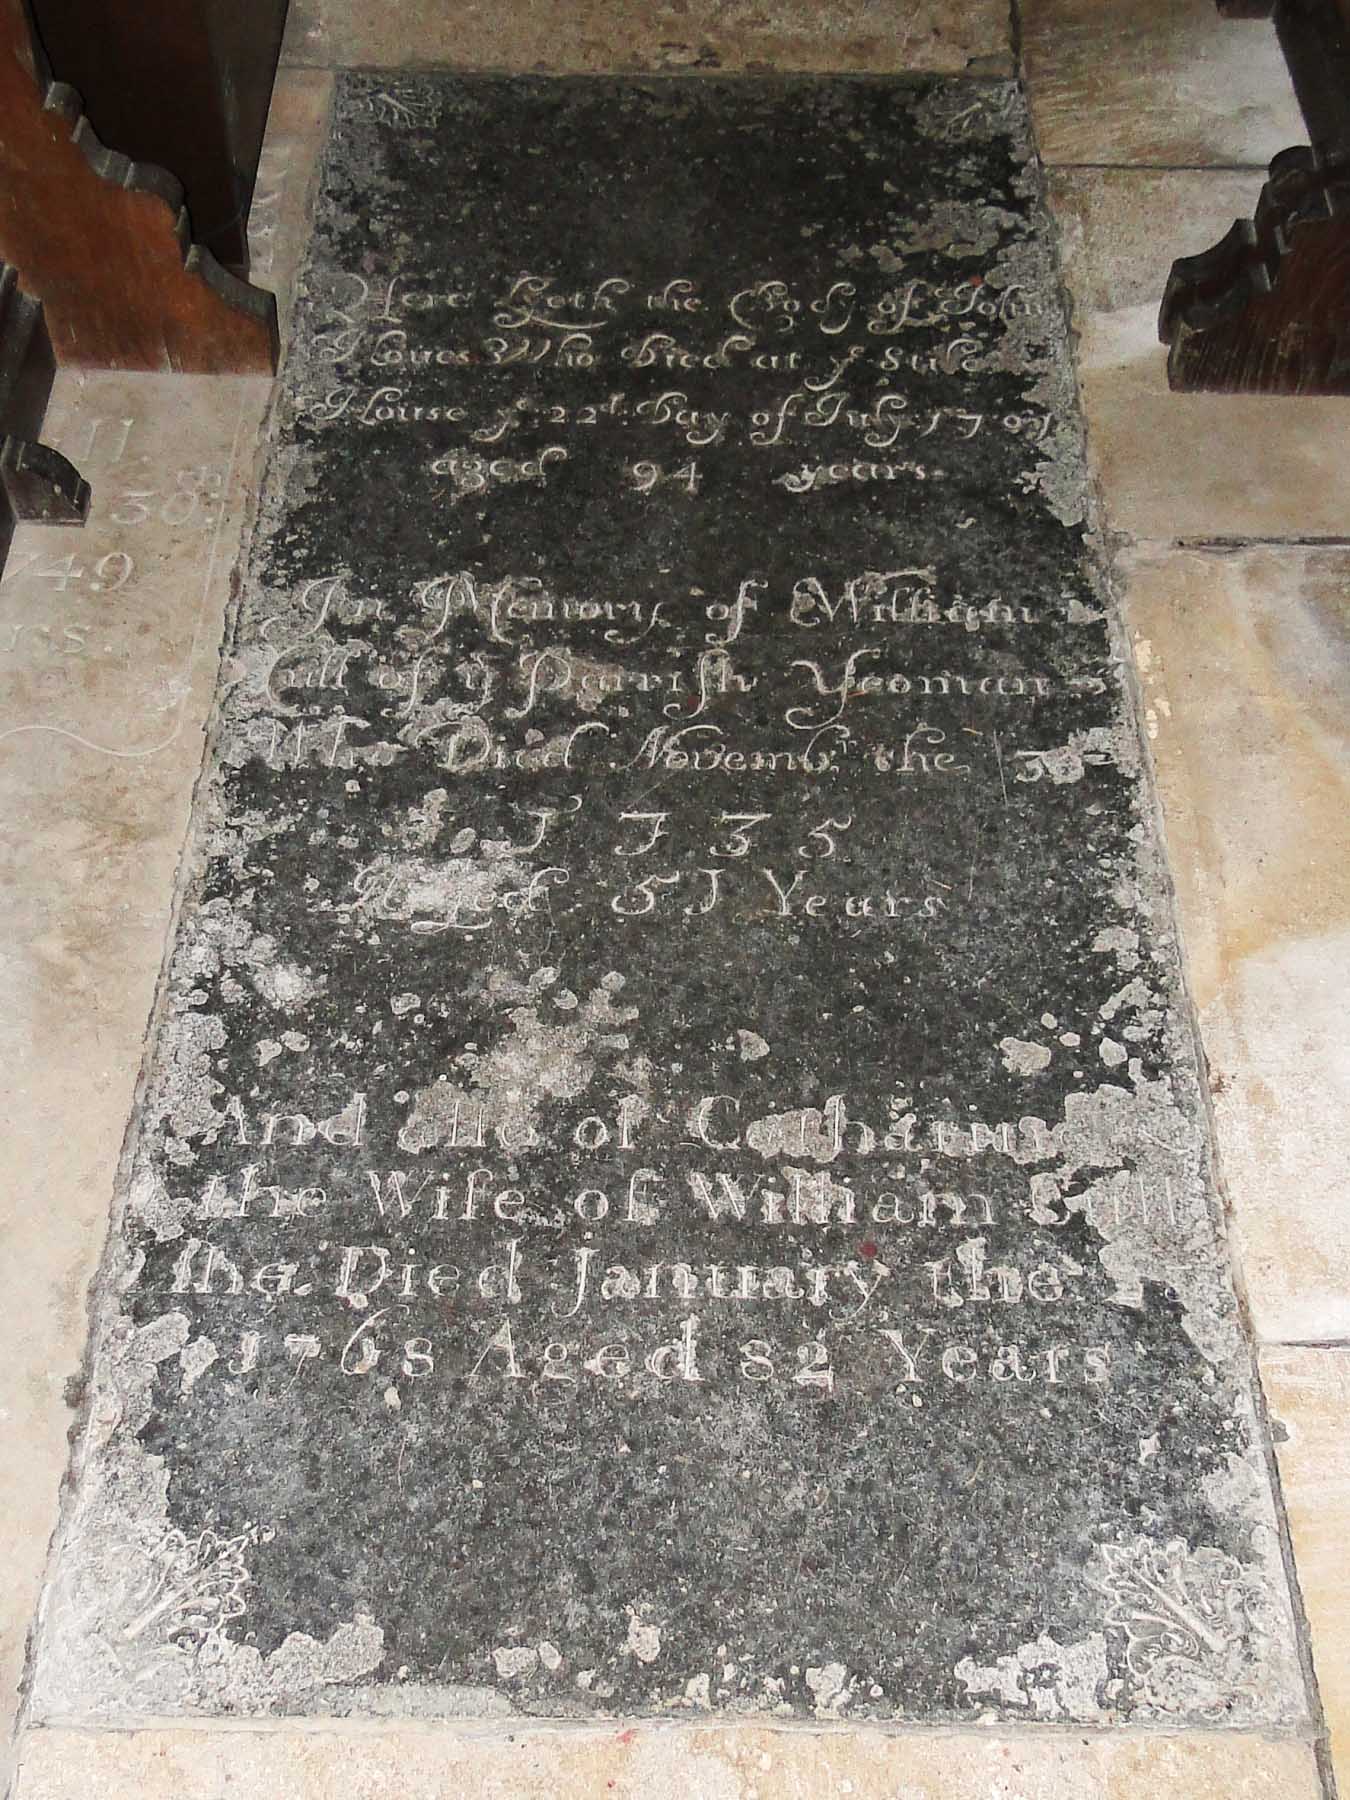 Here lyeth the Body of John
Who Died at yͤ Stile
House yͤ 22ᵈ. Day of July 1707
aged 94 years.
In Memory of William
Cull of yͤ Parish Yeoman
Who Died Novembʳ the 30
1735
Aged 51 Years
And also of Catharine
the Wife of William Cull
Died January the
1768 Aged 82 Years
11
30
49